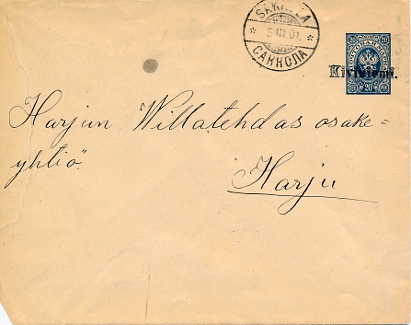 SAKKOLA
3.III.01.
САККОЛА
Kiviniemi.
20
20
20
Harjun Willatehdas osake=
yhtiö.
Harju